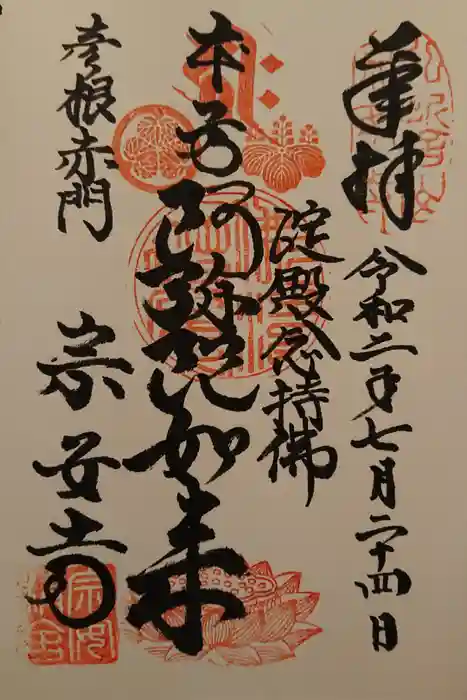 奉拝
令和二年七月二十四日
淀殿念持佛
本尊
阿弥陀如来
彦根赤門
宗安寺